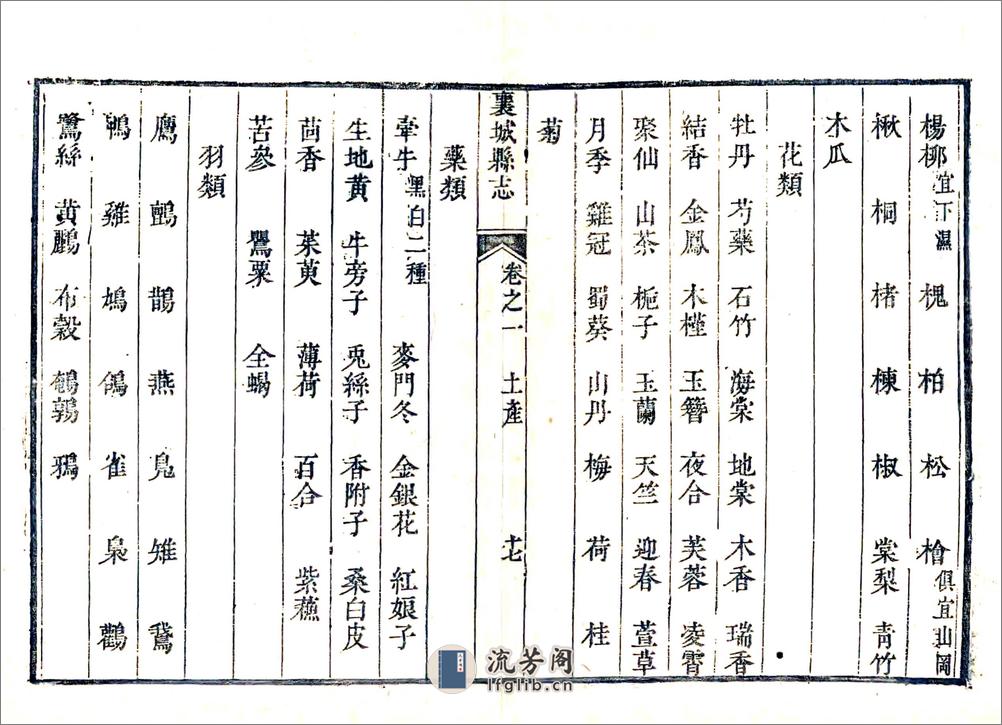 楊柳宜下濕 槐 柏 松 檜俱宜山岡
楸 桐 楮 楝 椒 棠梨 青竹
木瓜
花類
牡丹 芍藥 石竹 海棠 地棠 木香 瑞香
結香 金鳳 木槿 玉簪 夜合 芙蓉 凌霄
聚仙 山茶 梔子 玉蘭 天竺 迎春 萱草
月季 雞冠 蜀葵 山丹 梅 荷 桂
菊
襄城縣志 卷之一 土產 十七
藥類
牽牛黑白二種 麥門冬 金銀花 紅娘子
生地黃 牛旁子 兎絲子 香附子 桑白皮
茴香 茱萸 薄荷 百合 紫蘓
苦參 罌粟 全蝎
羽類
鷹 鸇 鵲 燕 鳬 雉 鵞
鴨 雞 鳩 鴿 雀 梟 鸛
鷺絲 黃鸝 布穀 鵪鶉 鴉
流芳阁
lfglib.cn